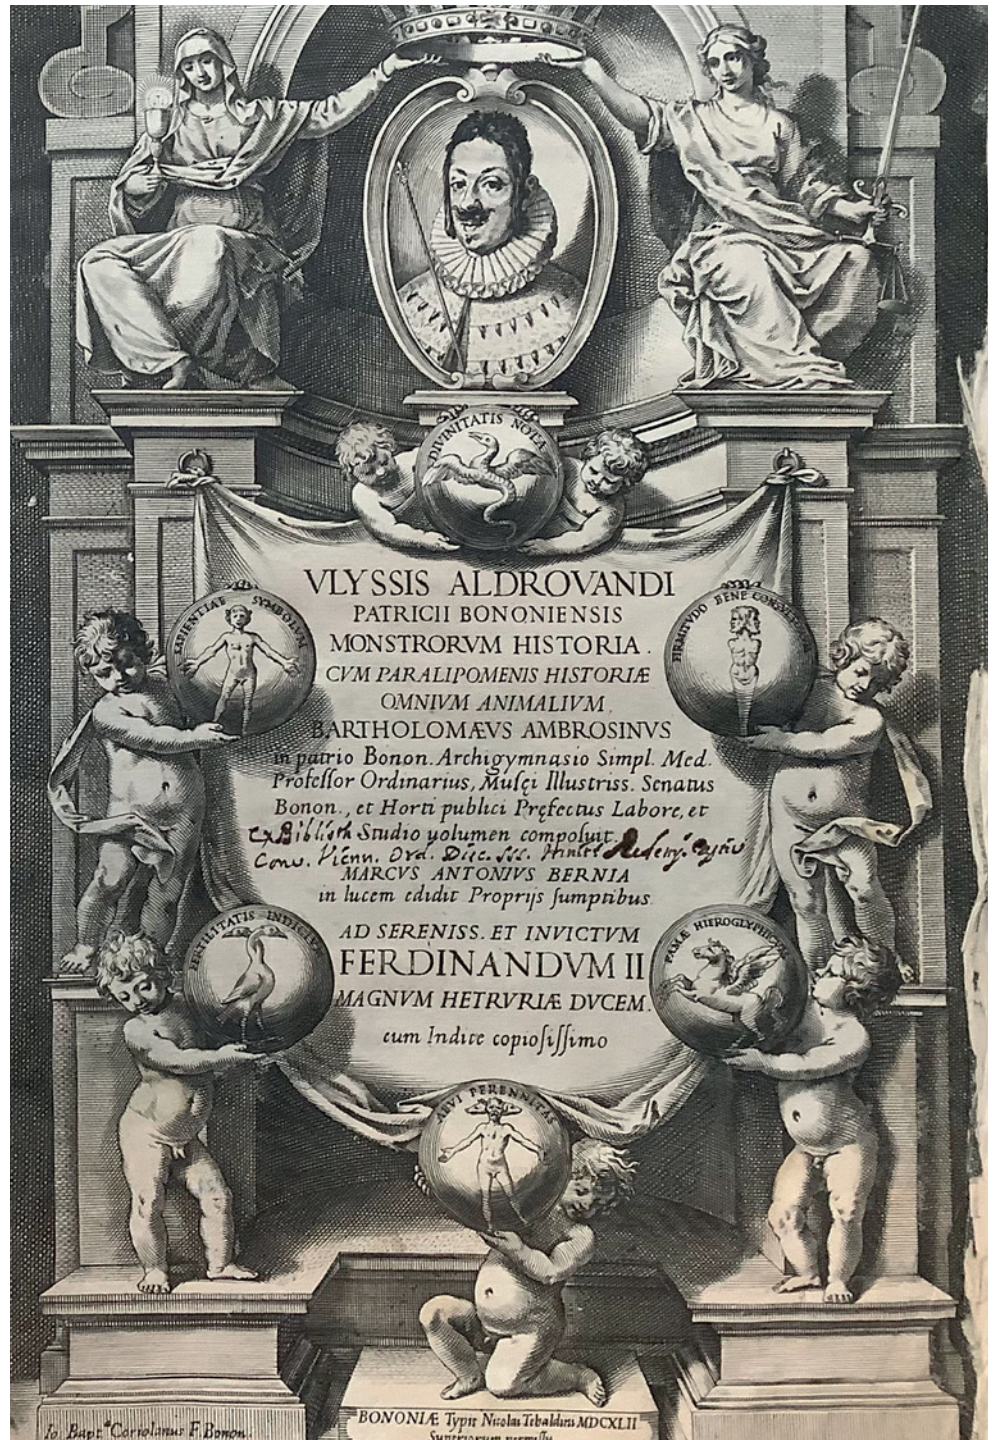 DIVINITATIS NOTA
VLYSSIS ALDROVANDI
PATRICII BONONIENSIS
MONSTRORVM HISTORIA.
CVM PARALIPOMENIS HISTORIÆ
OMNIVM ANIMALIVM.
BARTHOLOMÆVS AMBROSINVS
in patrio Bonon. Archigymnasio Simpl. Med.
Professor Ordinarius, Musęi Illustriss. Senatus
Bonon., et Horti publici Pręfectus Labore, et
Studio volumen composuit.
Conv. Vienn. Ord.
MARCVS ANTONIVS BERNIA
in lucem edidit Proprijs sumptibus
AD SERENISS. ET INVICTVM
FERDINANDVM II
MAGNVM HETRVRIÆ DVCEM.
cum Indice copiosissimo
SAPIENTIAE SYMBOLVM
FIRMITVDO BENE
FERTILITATIS INDICIVM
FAMÆ HIEROGLYPHICVM
AEVI PERENNITAS
Io. Bapt.a Coriolanus F. Bonon.
BONONIÆ Typis Nicolai Tebaldini MDCXLII
Superiorum permissu